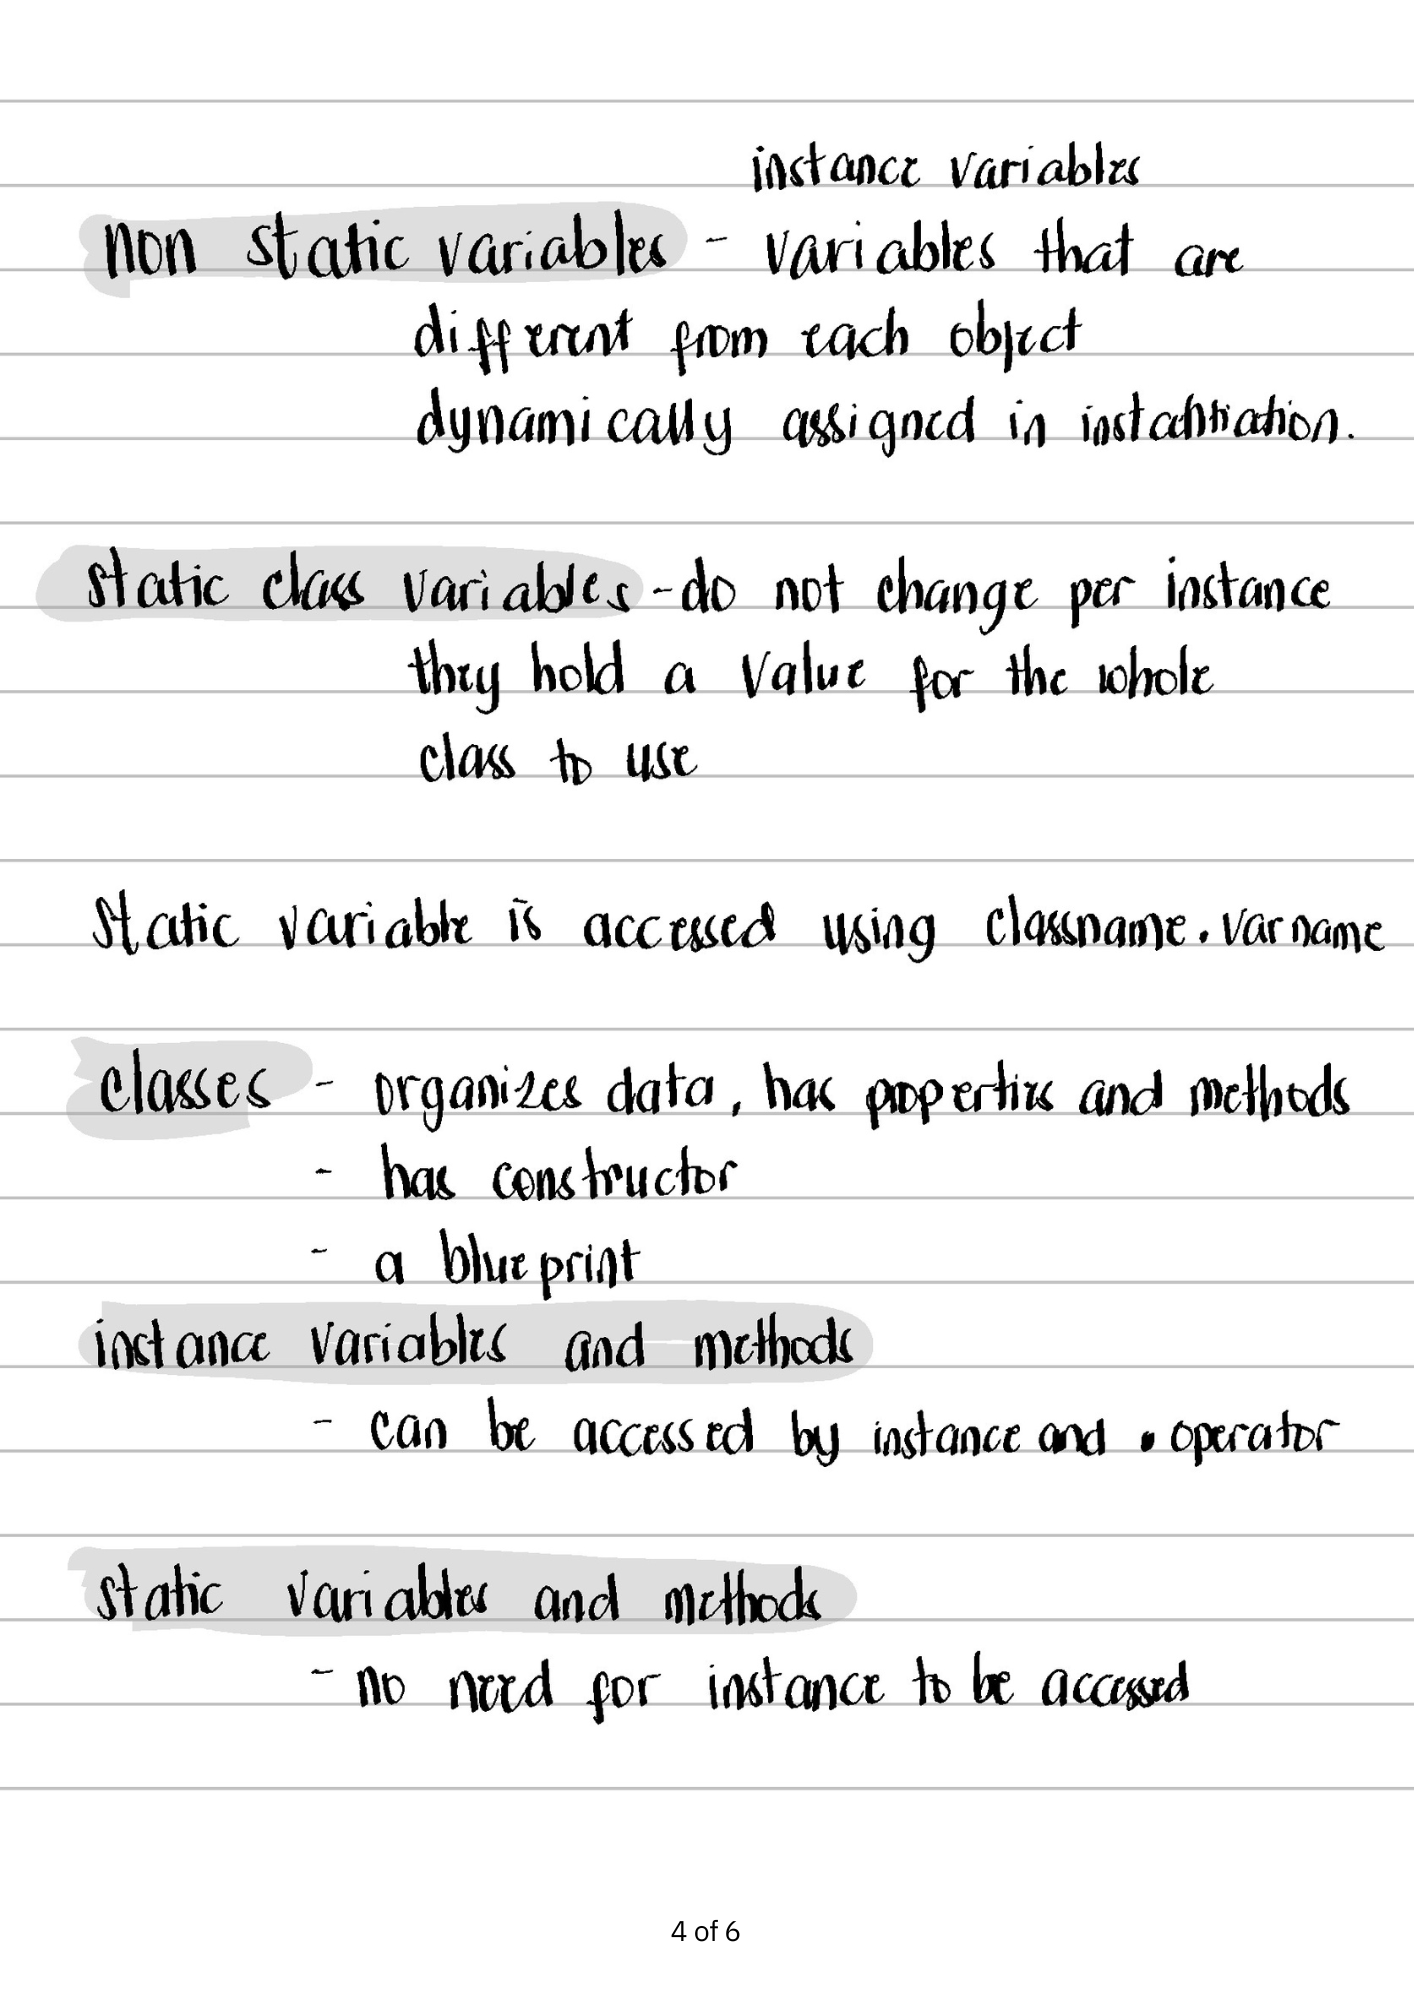 instance variables
non static variables - variables that are
different from each object
dynamically assigned in instantiation.
static class variables - do not change per instance
they hold a value for the whole
class to use
Static variable is accessed using classname.varname
classes - organizes data, has properties and methods
- has constructor
- a blueprint
instance variables and methods
- can be accessed by instance and . operator
static variables and methods
- no need for instance to be accessed
4 of 6